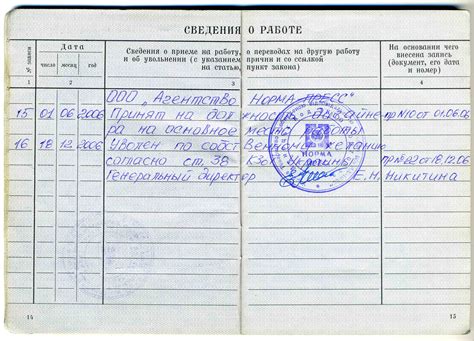 СВЕДЕНИЯ О РАБОТЕ
№ записи
Дата
Сведения о приеме на работу, о переводах на другую работу
и об увольнении (с указанием причин и со ссылкой
на статью, пункт закона)
На основании чего
внесена запись
(документ, его дата
и номер)
число месяц год
1 2 3 4
ООО „Агентство НОРМА-ПРЕСС"
15 01 06 2006 Принят на должность дизайне- пр №10 от 01.06.06
ра на основное место работы
16 18 12 2006 Уволен по собственному желанию
согласно ст. 38 КЗоТ Украины пр №82 от 18.12.06
Генеральный директор Е.Н. Никитина
НОРМА
14 15